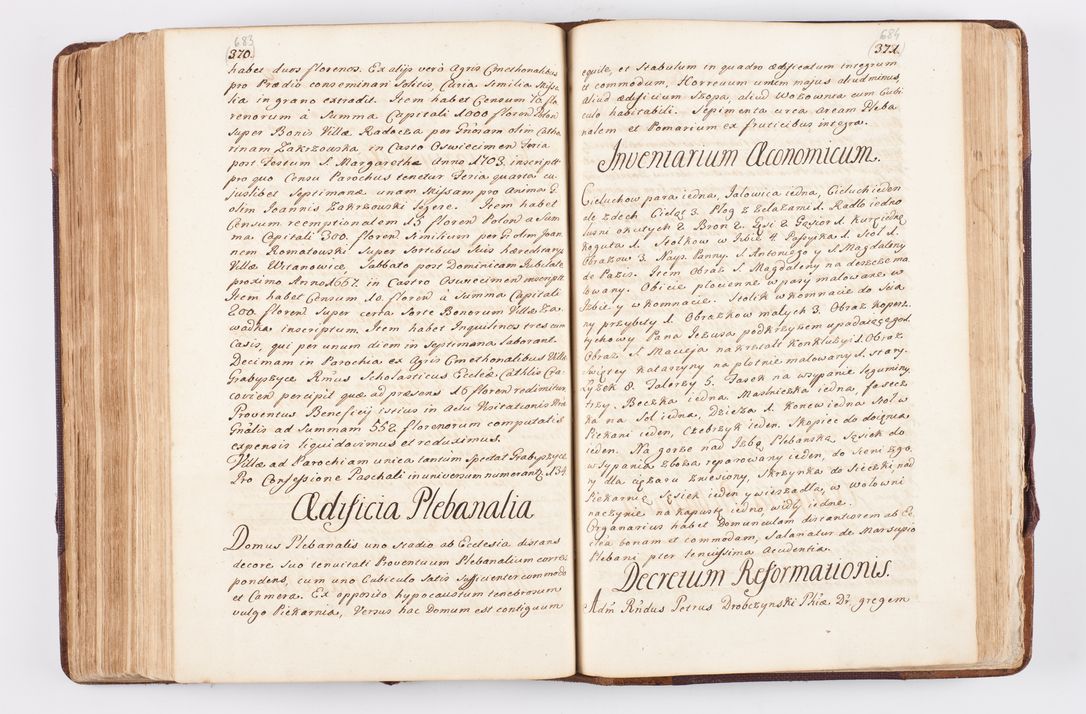 683
370.
habet duos florenos. Ex alijs verò Agris Cmethonalibus
pro Prædio conseminari solitis, Curia similia Missa
lia in grano extradit. Item habet Censum 70 flo
renorum à Summa Capitali 1000 floren Polon
super Bonis Villæ Radocza per Gnosam olim Catha
rinam Zakrzowska in Castro Oswiecimen Feria
post Festum S. Margarethæ Anno 1703. inscript
pro quo Censu Parochus tenetur Feria quarta cu
juslibet Septimanæ unam Missam pro Anima G.
olim Joannis Zakrzowski legere. Item habet
Censum reemptionalem 13 floren Polon a Sum
ma Capitali 300. floren similium per G olim Joan
nem Romatowski super Sortibus suis hæreditarijs
Villæ Wrzanowice, Sabbato post Dominicam Jubilate
proximo Anno 1667. in Castro Oswiecimen inscript
Item habet Censum 10 floren à Summa Capitali
200. floren super certa Sorte Bonorum Villæ Za
wadka inscriptum. Item habet Inquilinos tres cum
Casis, qui per unum diem in septimana laborant.
Decimam in Parochia ex Agris Cmethonalibus Villæ
Grabyszyce Rmus Scholasticus Ecclæ Cathlis Cra
covien percipit quæ ad præsens 16 floren redimitur
Proventus Beneficij istius in Actu Visitationis
Gnãlis ad Summam 552 florenorum computatis
expensis liquidavimus et reduximus.
Villæ ad Parochiam unica tantum spectat Grabyszyce
Pro Confessione Paschali in universum numerantq 134.
Ædificia Plebanalia
Domus Plebanalis uno stadio ab Ecclesia distans
decore suo tenuitati Proventuum Plebanalium corres
pondens, cum uno Cubiculo satis sufficienter commodo
et Camera. Ex opposito hypocaustum tenebrosum
vulgo Piekarnia, Versus hac Domum est contiguum
684
371.
equile, et Stabulum in quadro ædificatum integrum
et commodum, Horreum unum majus aliud minus,
aliud ædificium Szopa, aliud Wozownia cum Cubi
culo habitabili. Sepimenta circa aream Pleba
nalem et Pomarium ex fruticibus integra.
Inventarium Æconomicum.
Cieluchow para iedna, Jalowica iedna, Cieluch ieden
ale zdech. Cieląt 3. Plog z żelazami 1. Radlo iedno
lusni okutych 2 Bron 2. Gęsi 2 Gąsior 1. Kurę iednę
koguta 1. Stolkow w Izbie 4 1. Stol 1.
Obrazow 3. Nays. Panny. S. Antoniego y S. Magdaleny
de Pazis. Item Obraz S. Magdaleny na deszcze ma
lowany. Obicie plocienne w pasy malowane w
Izbie y w komnacie. Stolik w komnacie do scia
ny przybity 1. Obrazkow malych 3. Obraz kopersz
tychowy Pana Jezusa pod krzyzem upadaiącego 1.
Obraz S. Macieja na ksztalt konkluzyi 1. Obraz
Swiętey Katarzyny na plotnie malowany 1. stary.
Łyżek 8. Talerzy 5. Fasek na wsypanie leguminy
trzy. Beczka iedna. Maslniczka iedna, Fasecz
ka na Sol iedna, Dzieża 1. Konew iedna Stol w
Piekarni ieden, Czebrzyk ieden. Skopiec do doienia
ieden. Na gorze nad Izbą Plebanską Sąsiek do
wsypania zboża reparowany ieden, do sieni z go
ry dla cężaru zniesiony, Skrzynka do Sieczki, nad
Piekarnią Sąsiek ieden y wierzadla, w wolowni
naczynie na kapustę iedno, widly iedne.
Organarius habet Domunculam distantiorem ab Ec
clea bonam et commodam, Salariatur de Marsupio
Plebani pter tenuissima Accidentia.
Decretum Reformationis.
Adm Rñdus Petrus Drobczynski Phiæ Dr. gregem